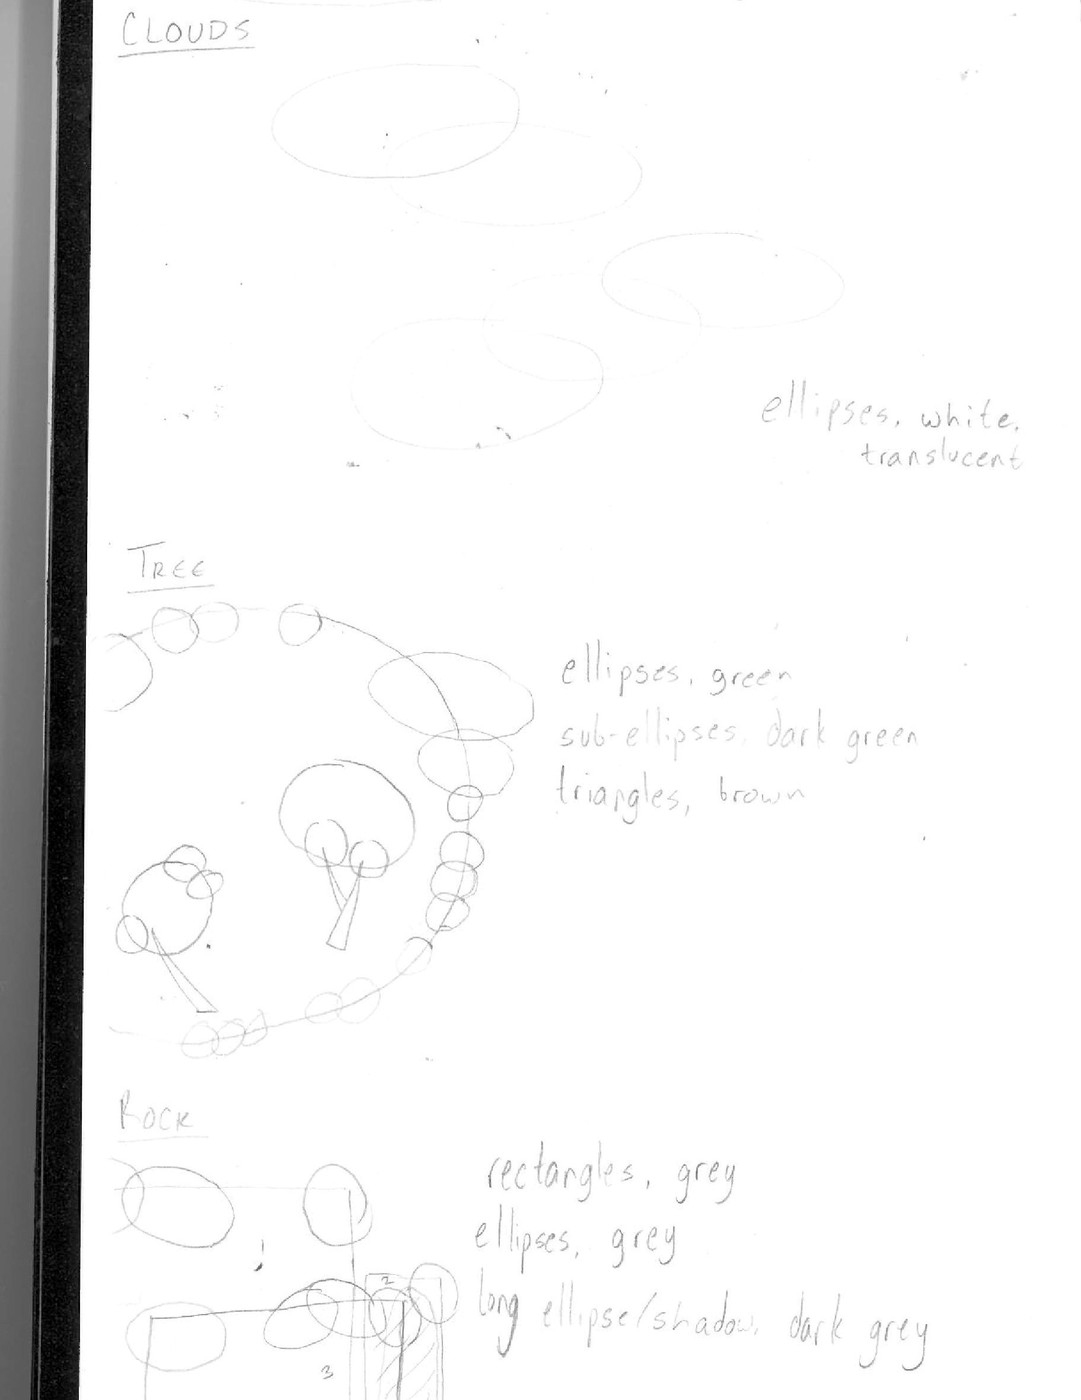 CLOUDS
ellipses, white,
translucent
TREE
ellipses, green
sub-ellipses, dark green
triangles, brown
ROCK
rectangles, grey
ellipses, grey
long ellipse/shadow, dark grey
2
3